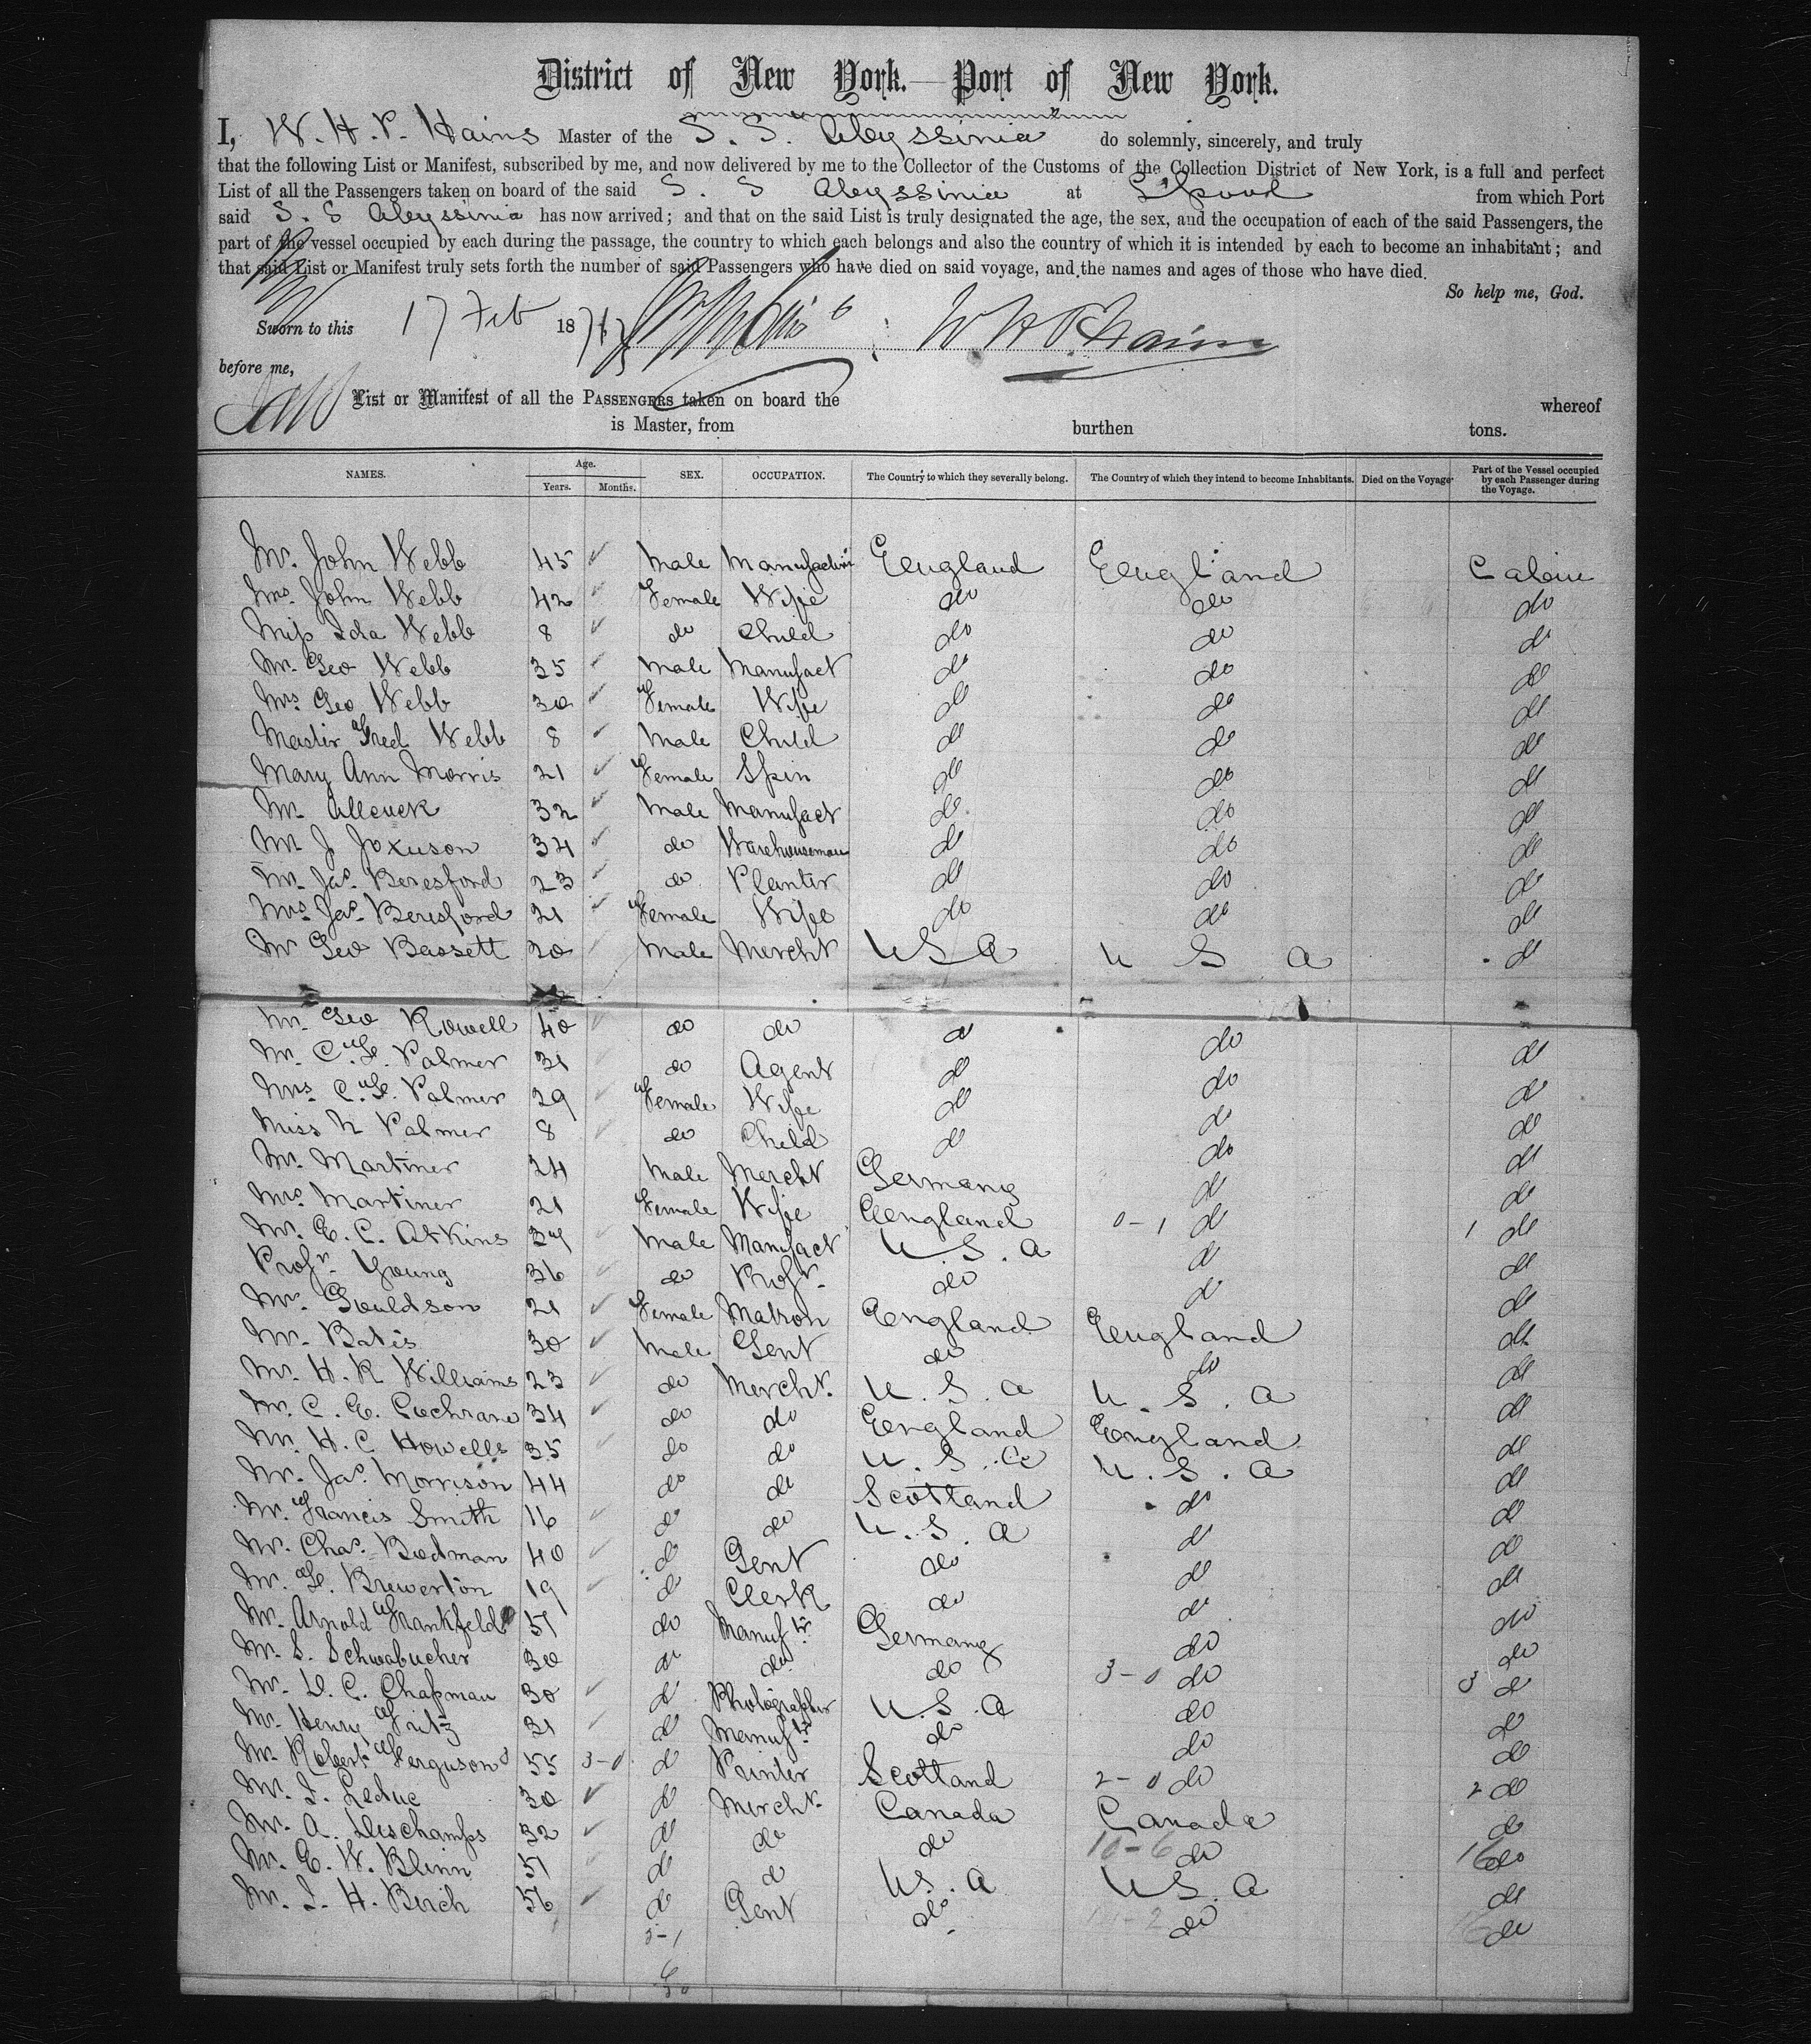 District of New York.—Port of New York.
I, W. H. P. Hains Master of the S. S. Abyssinia do solemnly, sincerely, and truly
that the following List or Manifest, subscribed by me, and now delivered by me to the Collector of the Customs of the Collection District of New York, is a full and perfect
List of all the Passengers taken on board of the said S. S Abyssinia at L'pool from which Port
said S. S Abyssinia has now arrived; and that on the said List is truly designated the age, the sex, and the occupation of each of the said Passengers, the
part of the vessel occupied by each during the passage, the country to which each belongs and also the country of which it is intended by each to become an inhabitant; and
that said List or Manifest truly sets forth the number of said Passengers who have died on said voyage, and the names and ages of those who have died.
So help me, God.
Sworn to this 17 Feb 1876 W H P Hains
before me,
List or Manifest of all the PASSENGERS taken on board the whereof
is Master, from burthen tons.
NAMES. Age. Years. Months. SEX. OCCUPATION. The Country to which they severally belong. The Country of which they intend to become Inhabitants. Died on the Voyage. Part of the Vessel occupied by each Passenger during the Voyage.
Mr. John Webb 45 Male Manufacturer England England Cabin
Mrs. John Webb 42 Female Wife do do do
Miss Ida Webb 8 do Child do do do
Mr. Geo Webb 35 Male Manufact do do do
Mrs Geo Webb 30 Female Wife do do do
Master Fred Webb 8 Male Child do do do
Mary Ann Morris 21 Female Spin do do do
Mr. 32 Male Manufact do do do
Mr J 34 do Warehouseman do do do
Mr. Jas. Beresford 23 do Planter do do do
Mrs. Jas. Beresford 21 Female Wife do do do
Mr Geo Bassett 20 Male Mercht U S A U S A do
Mr. Geo Rowell 40 do do do do do
Mr. C. F. Palmer 31 do Agent do do do
Mrs. C. F. Palmer 29 Female Wife do do do
Miss N Palmer 8 do Child do do do
Mr. Martiner 24 Male Mercht Germany do do
Mrs. Martiner 21 Female Wife England 0-1 do 1 do
Mr. E. C. Atkins 34 Male Manufact U. S. A do do
Profr. Young 36 do Profr. do do do
Mrs. Gouldson 21 Female Matron England England do
Mr. Bates 30 Male Gent do do do
Mr. H. R Williams 23 do Mercht. U. S. A U. S. A do
Mr. C. E. Cochrane 34 do do England England do
Mr. H. C Howells 35 do do U. S. A U. S. A do
Mr. Jas. Morrison 44 do do Scotland do do
Mr. Francis Smith 16 do do U. S. A do do
Mr. Chas. Bodman 40 do Gent do do do
Mr. F. Brewerton 19 do Clerk do do do
Mr. Arnold Frankfeld 51 do Manuftr. Germany do do
Mr. S. Schwabucher 30 do do do 3-0 do 3 do
Mr. D. C. Chapman 30 do Photographer U. S. A do do
Mr. Henry Fritz 31 do Manuftr. do do do
Mr. Robert Ferguson 55 3-0 do Printer Scotland 2-0 do 2 do
Mr. I. Leduc 30 do Mercht. Canada Canada do
Mr. A. Deschamps 32 do do do 10-6 do 16 do
Mr. E. W. Blinn 51 do do U.S.A U.S.A do
Mr. I. H. Birch 56 do Gent do do do
5-1